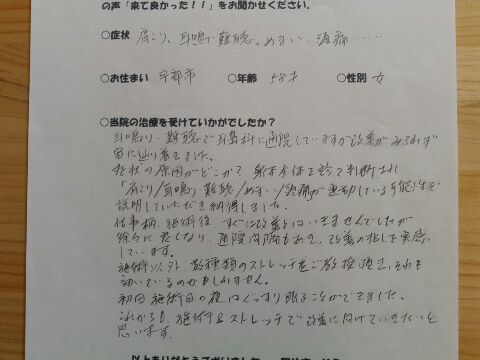 の声「来て良かった！！」をお聞かせください。
○症状 肩こり、耳鳴り・難聴、めまい、頭痛……
○お住まい 宇部市 ○年齢 58才 ○性別 女
○当院の治療を受けていかがでしたか？
耳鳴り・難聴で耳鼻科に通院していますが改善がみられず
宙に辿り着きました。
症状の原因がどこかで 身体全体を診て判断され
「肩こり/耳鳴り・難聴/めまい/頭痛」が連動している可能性を
説明していただき納得しました。
仕事柄、施術後 すぐに改善とはいきませんでしたが
徐々に良くなり、通院間隔もあき、改善の兆しを実感
しています。
施術以外、数種類のストレッチをご教授頂き、それも
効いているのかもしれません。
初回 施術日の夜はぐっすり眠ることができました。
これからも 施術＆ストレッチで改善に向けていきたいと
思います。